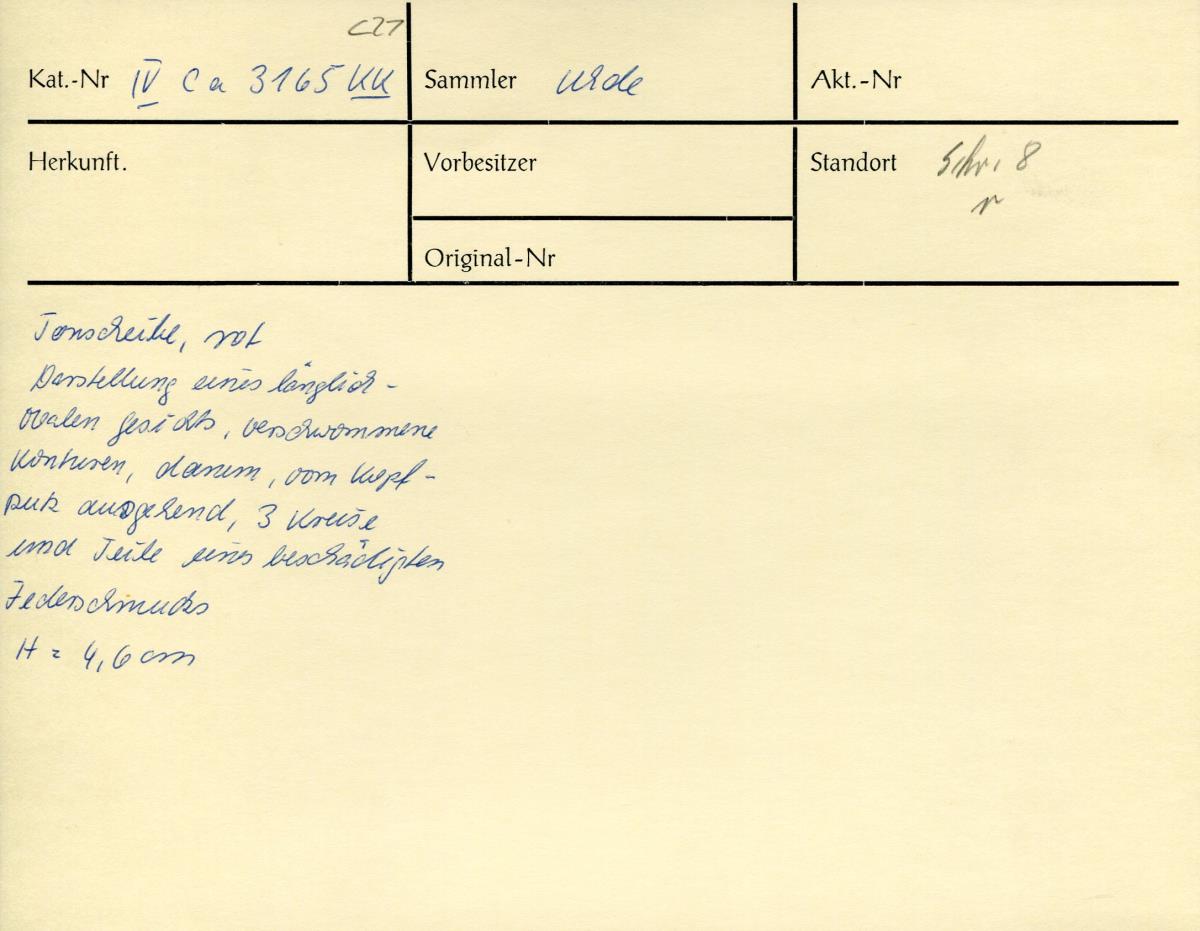 C27
Kat.-Nr IV Ca 3165 KK
Sammler Uhde
Akt.-Nr
Herkunft.
Vorbesitzer
Standort Schr. 8
r
Original-Nr
Tonscheibe, rot
Darstellung eines länglich-
ovalen Gesichts, verschwommene
Konturen, darum, vom Kopf-
putz ausgehend, 3 Kreise
und Teile eines beschädigten
Federschmucks
H = 4,6 cm